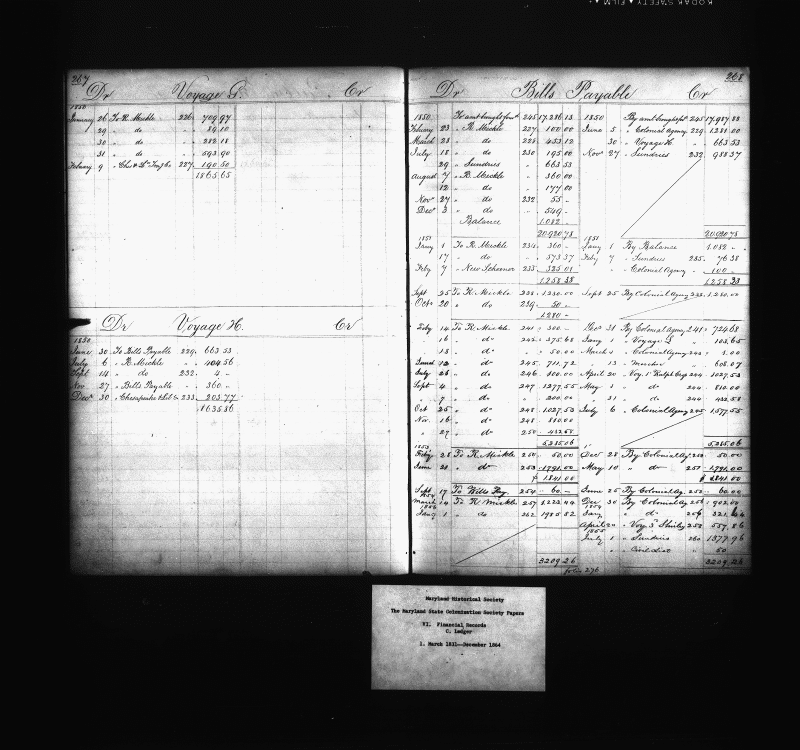 KODAK SAFETY FILM
267
Dr Voyage G. Cr
1850
January 26 To R. Mickle 226 709.97
29 " do " 89.10
30 " do " 282.18
31 " do " 593.90
February 9 227 190.50
1865.65
Dr Voyage H. Cr
1850
June 30 To Bills Payable 229 663 53
July 6 " R. Mickle " 404 56
Sept 14 " do 232 4 "
Nov 27 " Bills Payable " 360 "
Decr 30 " Chesapeake 233 203.77
1635.86
268
Dr Bills Payable Cr
1850 245 17,286 13 1850 245 17,987 88
February 23 " R. Mickle 227 100 00 June 5 " Colonial Agency 229 1281 00
March 28 " do 228 453.12 30 " Voyage H. " 663 53
July 18 " do 230 195 00 Nov 27 " Sundries 232 988 37
29 " Sundries " 663 53
August 7 " R. Mickle " 360 00
12 " do " 177 00
Nov 27 " do 232 55 "
Decr 3 " do " 549 "
Balance 1,082 "
20,920 78 20,920 78
1851 1851
Jany 1 To R. Mickle 234 360 " Jany 1 By Balance 1,082 "
17 " do " 573 37 Feby 7 " Sundries 235 76 38
Feby 7 " New Schooner 235 325 01 " Colonial Agency " 100 "
1,258 38 1,258 38
Sept 25 To R. Mickle 238 1,230.00 Sept 25 By Colonial Agency 238 1,280.00
Octr 20 " do 239 50 "
1,280 "
Feby 14 To R. Mickle 241 300 " Decr 31 By Colonial Agency 241 724 68
16 " do 242 575 68 Jany 1 " Voyage " 103.65
18 " do " 50.00 March 4 " Colonial Agency 243 5.00
" do 245 711.72 " 13 " " 608.07
July 26 " do 246 100.00 April 20 244 1027 53
Sept 4 " do 247 1277.55 May 1 " do 244 810.00
" 7 " do " 200.00 " 31 " do 244 432.58
Oct 25 " do 248 1,027.53 July 6 " Colonial Agency 245 1,577.55
Nov. 16 " do 248 810.00
" 27 " do 250
5,285.06 5,285.06
1853
Feby 28 To R. Mickle 250 50.00 Dec 28 By Colonial Ag. 250 50.00
June 20 " do 253 1791.00 May 10 " do 257 1791.00
$ 1841 00 $ 1841.00
Sept 17 To Bills Pay. 254 60 " June 25 By Colonial Ag. 253 60.00
March 14 To R. Mickle 257 1,223.44 Dec 30 By Colonial Ag 256 902.00
Jany 1 " do 262 1985.82 Jany " do 256 321.44
April 20 " Voy. Shirley 258 557.86
July 1 " Sundries 260 1377.96
" Civil List " 50
3209.26 3209.26
folio 276
Maryland Historical Society
The Maryland State Colonization Society Papers
VI. Financial Records
C. Ledger
1. March 1831--December 1864